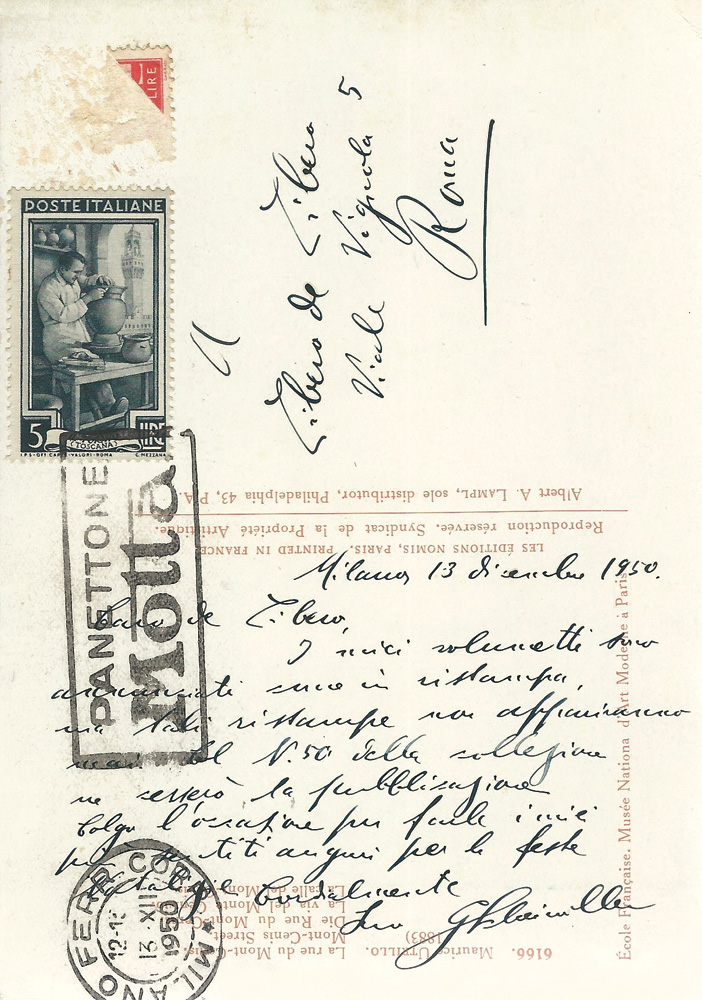 LIRE
POSTE ITALIANE
5 LIRE
TOSCANA
I.P.S.-OFF. CARTE-VALORI-ROMA C. MEZZANA
A
Libero de Libero
Viale Vignola 5
Roma
PANETTONE
Motta
Albert A. LAMPL, sole distributor, Philadelphia 43, PA.
Reproduction réservée. Syndicat de la Propriété Artistique.
LES ÉDITIONS NOMIS, PARIS. PRINTED IN FRANCE
Milano, 13 dicembre 1950.
Caro de Libero,
I miei volumetti sono
annunciati come in ristampa,
ma tali ristampe non appariranno
mai. Col N. 50 della collezione
ne cesserò la pubblicazione
Colgo l'occasione per farle i miei
più sentiti auguri per le feste
Natalizie Cordialmente
MILANO FERR. CORR.
13 XII
1950
6166. Maurice UTRILLO. La rue du Mont-Cenis.
(1883) Mont-Cenis Street.
Die Rue du Mont-Cenis
La via del Mont-Cenis
La calle del Mont-Cenis
École Française. Musée National d'Art Moderne à Paris